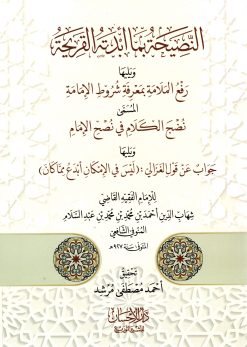 النَّصِيحَةُ بِمَا أَبْدَتْهُ الْقَرِيحَةُ
وَيَلِيهَا
رَفْعُ الْمَلَامَةِ بِمَعْرِفَةِ شُرُوطِ الْإِمَامَةِ
الْمُسَمَّى
نُصْحُ الْكَلَامِ فِي نُصْحِ الْإِمَامِ
وَيَلِيهَا
جَوَابٌ عَنْ قَوْلِ الْغَزَالِيِّ : (لَيْسَ فِي الْإِمْكَانِ أَبْدَعُ مِمَّا كَانَ)
لِلْإِمَامِ الْفَقِيهِ الْقَاضِي
شِهَابِ الدِّينِ أَحْمَدَ بْنِ مُحَمَّدِ بْنِ مُحَمَّدِ بْنِ عَبْدِ السَّلَامِ
الْمَنُوفِيِّ الشَّافِعِيِّ
المتوفى سنة ٩٢٧هـ
تحقيق
أحمد مصطفى مرشد